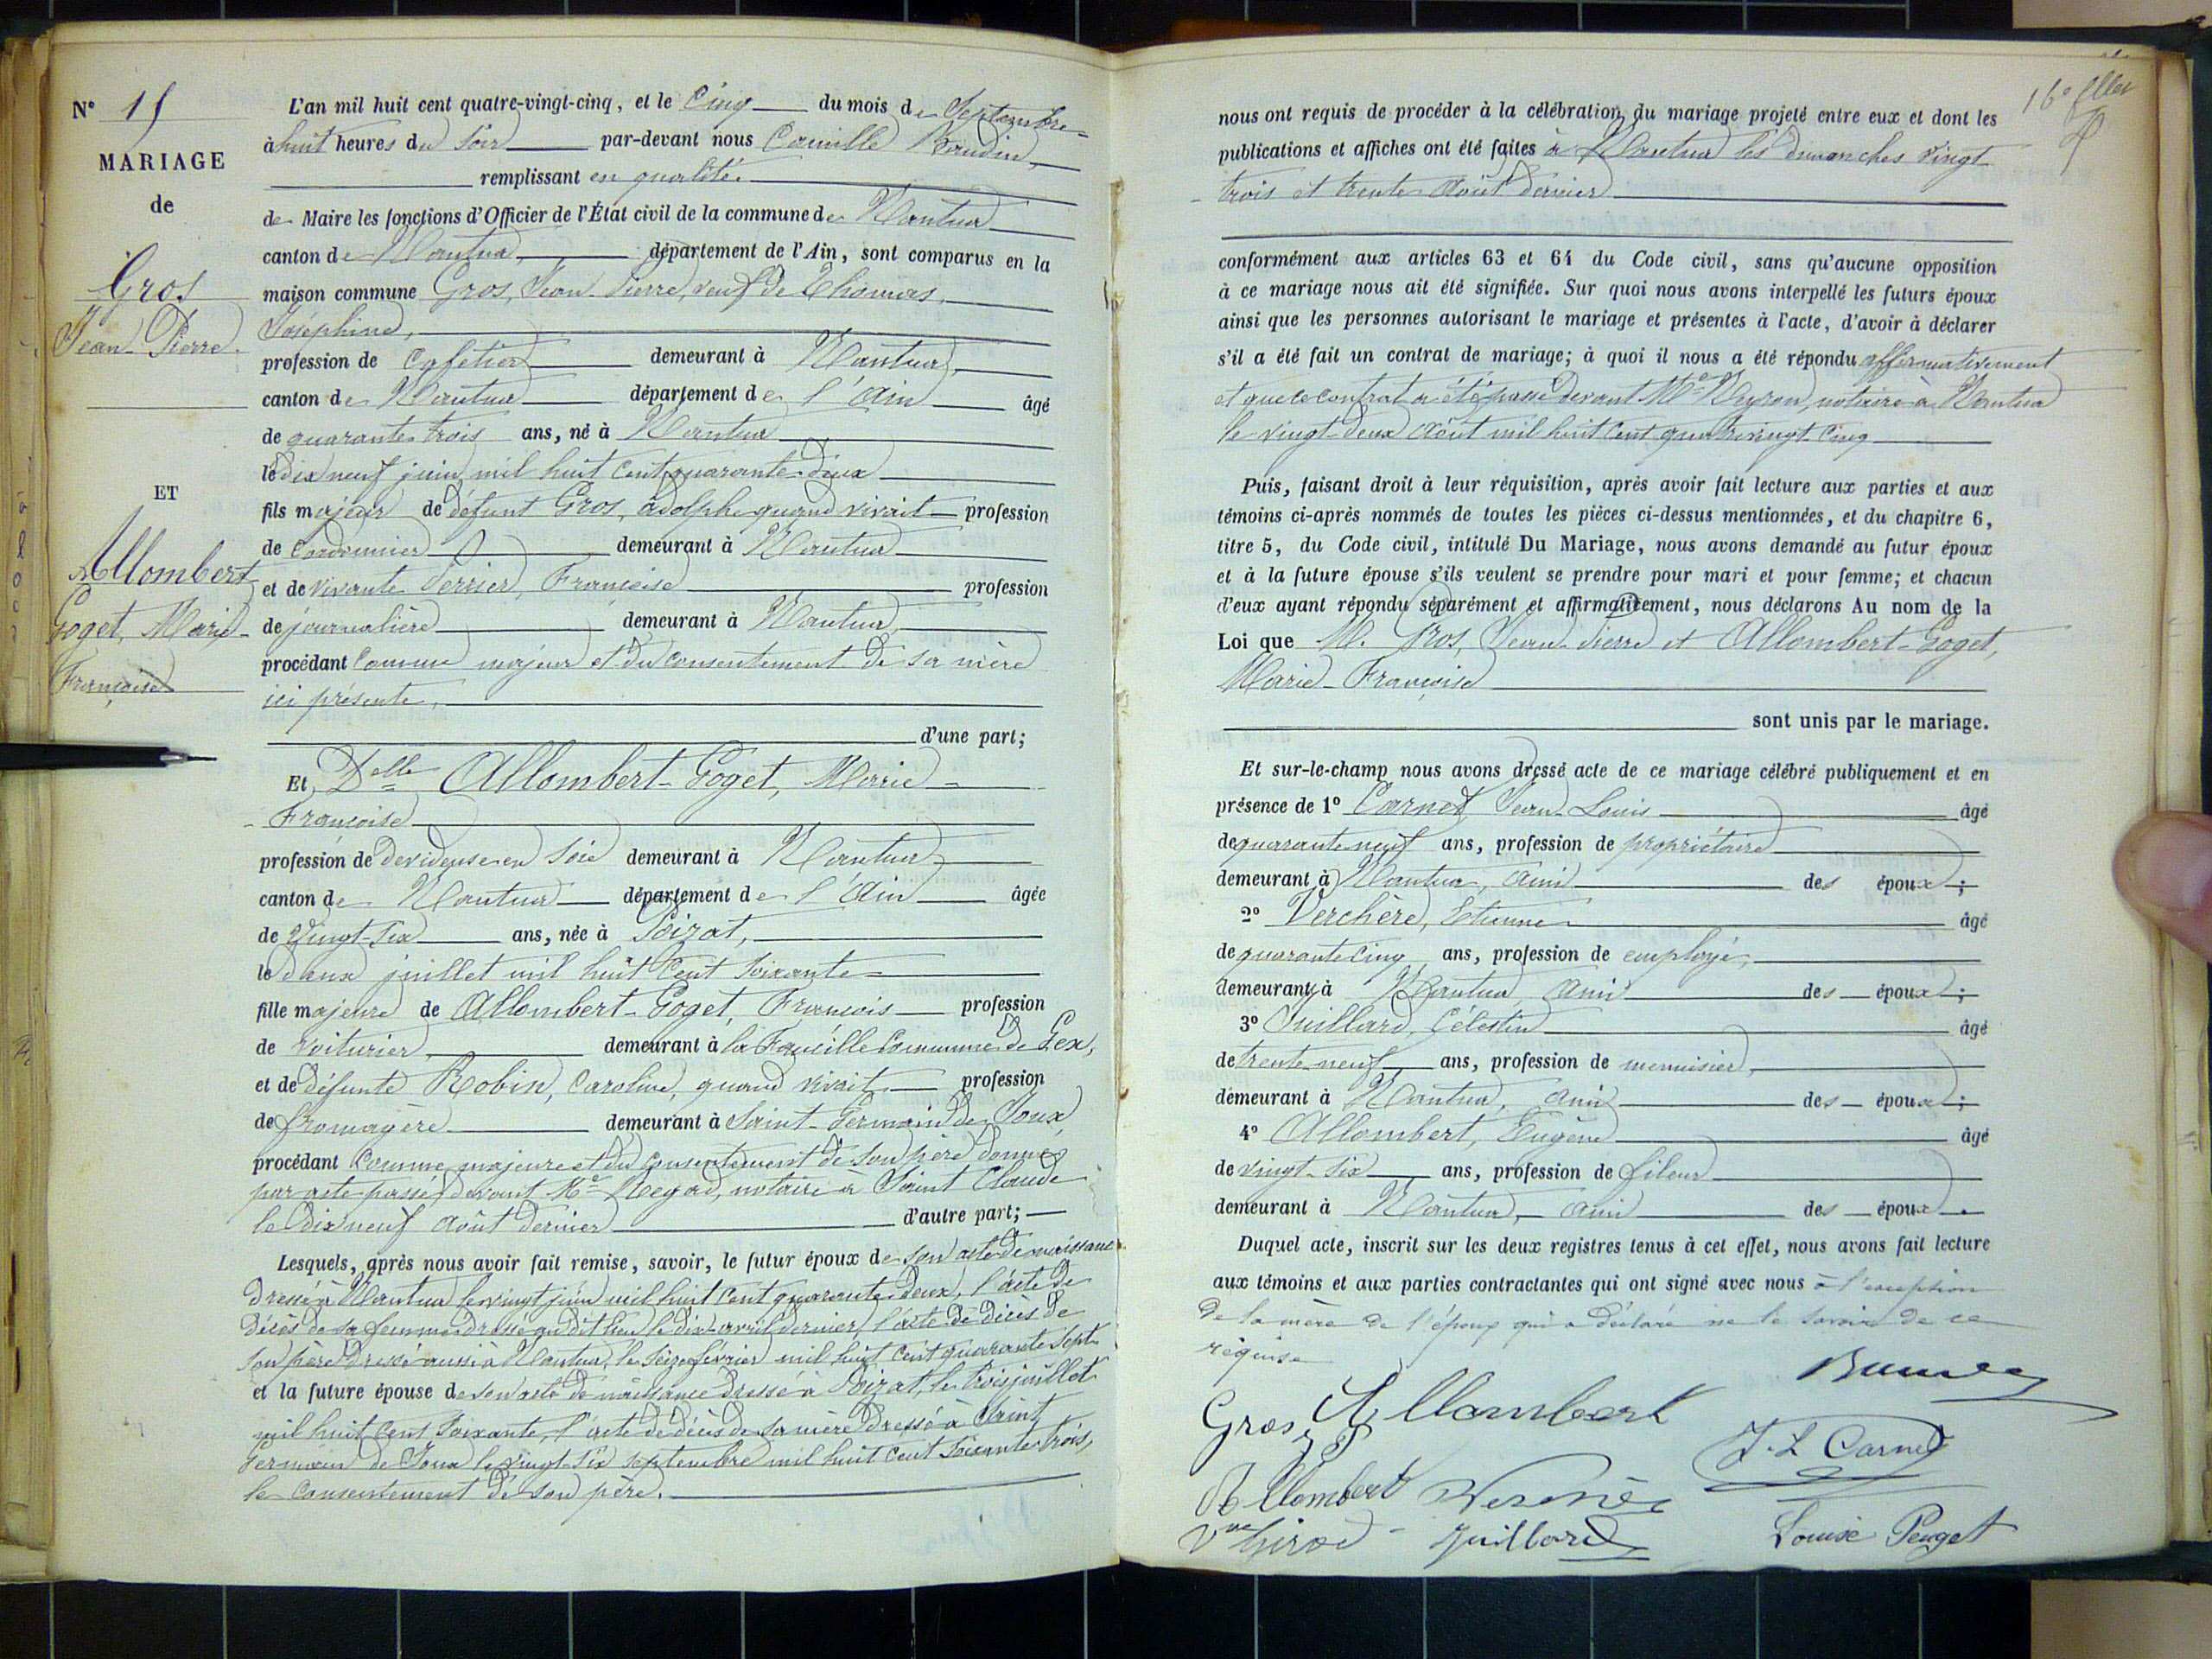 N° 15
MARIAGE
de
Gros
Jean-Pierre
ET
Allombert-
Goget, Marie-
Françoise
L'an mil huit cent quatre-vingt-cinq, et le Cinq du mois de Septembre
à huit heures du Soir par-devant nous Camille Baudin,
remplissant en qualité
de Maire les fonctions d'Officier de l'État civil de la commune de Nantua
canton de Nantua, département de l'Ain, sont comparus en la
maison commune Gros, Jean-Pierre, veuf de Thomas,
Joséphine,
profession de Cafetier demeurant à Nantua,
canton de Nantua département de l'Ain âgé
de quarante trois ans, né à Nantua
le dix neuf juin mil huit cent quarante-deux
fils majeur de défunt Gros, Adolphe quand vivait profession
de Cordonnier demeurant à Nantua
et de vivante Perrier, Françoise profession
de journalière demeurant à Nantua,
procédant comme majeur et du consentement de sa mère
ici présente,
d'une part;
Et Delle Allombert-Goget, Marie-
Françoise
profession de dévideuse en soie demeurant à Nantua,
canton de Nantua département de l'Ain âgée
de Vingt-cinq ans, née à Poizat,
le deux juillet mil huit cent soixante
fille majeure de Allombert-Goget, François profession
de voiturier, demeurant à la Faucille Commune de Gex,
et de défunte Robin, Caroline, quand vivait profession
de fromagère demeurant à Saint-Germain de Joux,
procédant comme majeure et du consentement de son père donné
par acte passé devant Me Mégard, notaire à Saint Claude
le dix neuf août dernier d'autre part;
Lesquels, après nous avoir fait remise, savoir, le futur époux de son acte de naissance
dressé à Nantua le vingt juin mil huit cent quarante deux, l'acte de
décès de sa femme dressé au dit lieu le dix avril dernier, l'acte de décès de
son père dressé aussi à Nantua, le seize février mil huit cent quarante sept
et la future épouse de son acte de naissance dressé à Poizat, le trois juillet
mil huit cent soixante, l'acte de décès de sa mère dressé à Saint
Germain de Joux le vingt-six septembre mil huit cent soixante trois,
le consentement de son père.
16e
nous ont requis de procéder à la célébration du mariage projeté entre eux et dont les
publications et affiches ont été faites à Nantua les dimanches vingt
trois et trente août dernier
conformément aux articles 63 et 64 du Code civil, sans qu'aucune opposition
à ce mariage nous ait été signifiée. Sur quoi nous avons interpellé les futurs époux
ainsi que les personnes autorisant le mariage et présentes à l'acte, d'avoir à déclarer
s'il a été fait un contrat de mariage; à quoi il nous a été répondu affirmativement
et que le contrat a été passé devant Me Neyron, notaire à Nantua
le vingt-deux août mil huit cent quatre vingt cinq
Puis, faisant droit à leur réquisition, après avoir fait lecture aux parties et aux
témoins ci-après nommés de toutes les pièces ci-dessus mentionnées, et du chapitre 6,
titre 5, du Code civil, intitulé Du Mariage, nous avons demandé au futur époux
et à la future épouse s'ils veulent se prendre pour mari et pour femme; et chacun
d'eux ayant répondu séparément et affirmativement, nous déclarons Au nom de la
Loi que M. Gros, Jean-Pierre et Allombert-Goget,
Marie-Françoise
sont unis par le mariage.
Et sur-le-champ nous avons dressé acte de ce mariage célébré publiquement et en
présence de 1° Carnet, Jean-Louis âgé
de quarante neuf ans, profession de propriétaire
demeurant à Nantua, ami des époux;
2° Verchère, Etienne âgé
de quarante cinq ans, profession de employé,
demeurant à Nantua, ami des époux;
3° Juillard, Célestin âgé
de trente neuf ans, profession de menuisier,
demeurant à Nantua, ami des époux;
4° Allombert, Eugène âgé
de vingt-six ans, profession de fileur
demeurant à Nantua, ami des époux.
Duquel acte, inscrit sur les deux registres tenus à cet effet, nous avons fait lecture
aux témoins et aux parties contractantes qui ont signé avec nous à l'exception
de la mère de l'époux qui a déclaré ne le savoir de ce
requise
Gros Allombert
J. L. Carnet
Allombert Verchère
Vve Girod Juillard Louise Peuget